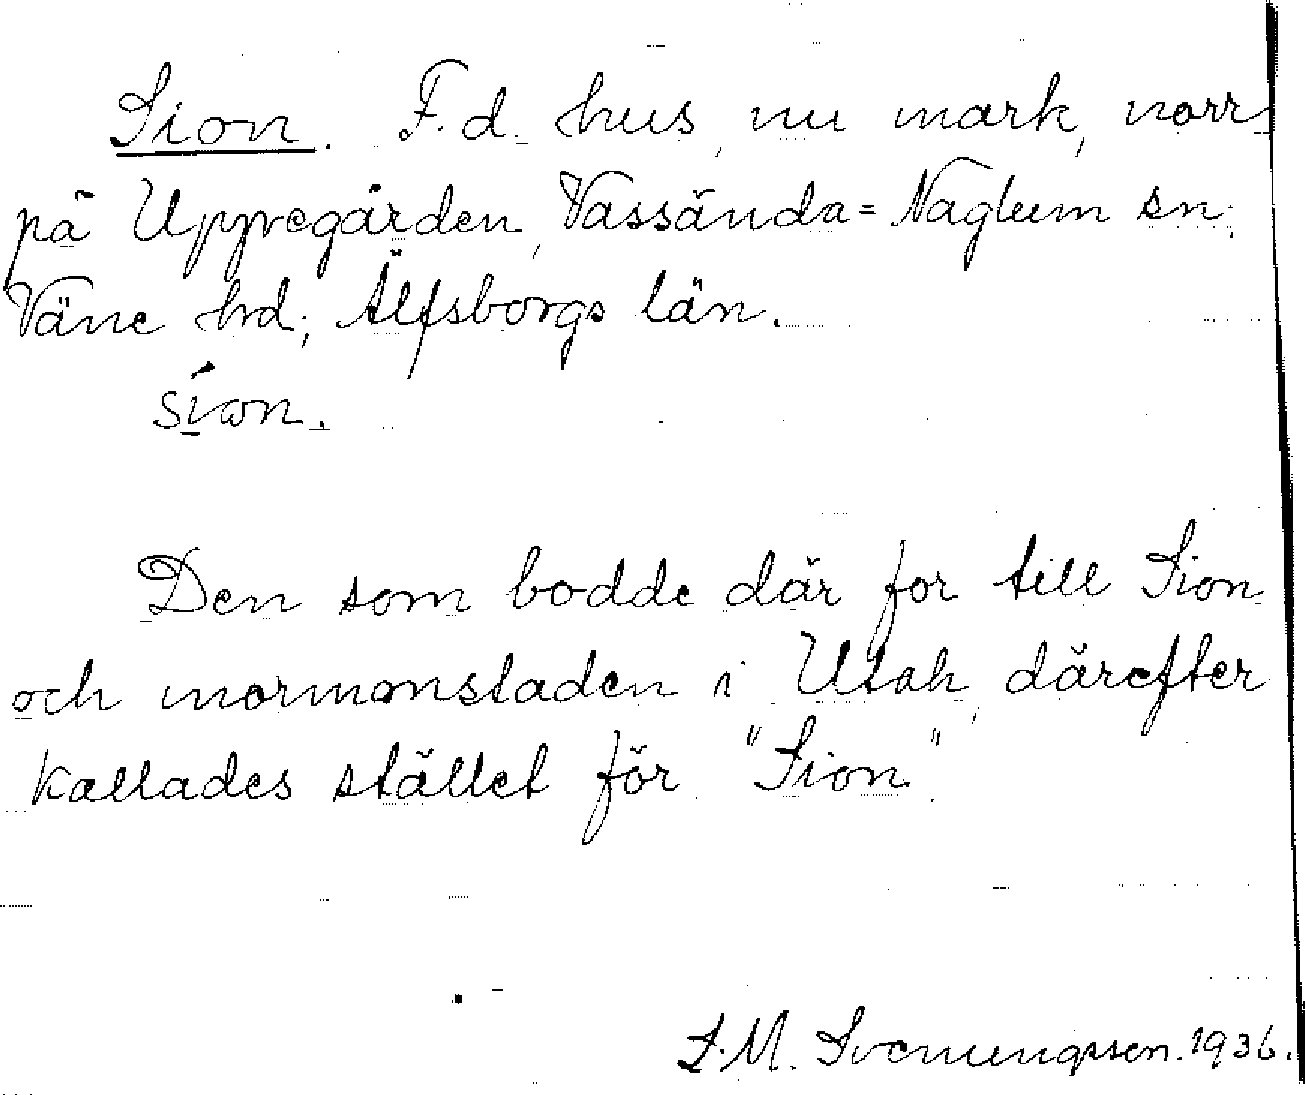 Sion. F.d. hus, nu mark, norr
på Uppvegården, Vassända=Naglum sn;
Väne hd; Älfsborgs län.
síon.
Den som bodde där for till Sion
och mormonstaden i Utah, därefter
kallades stället för "Sion".
S.M. Svenungsson. 1936.